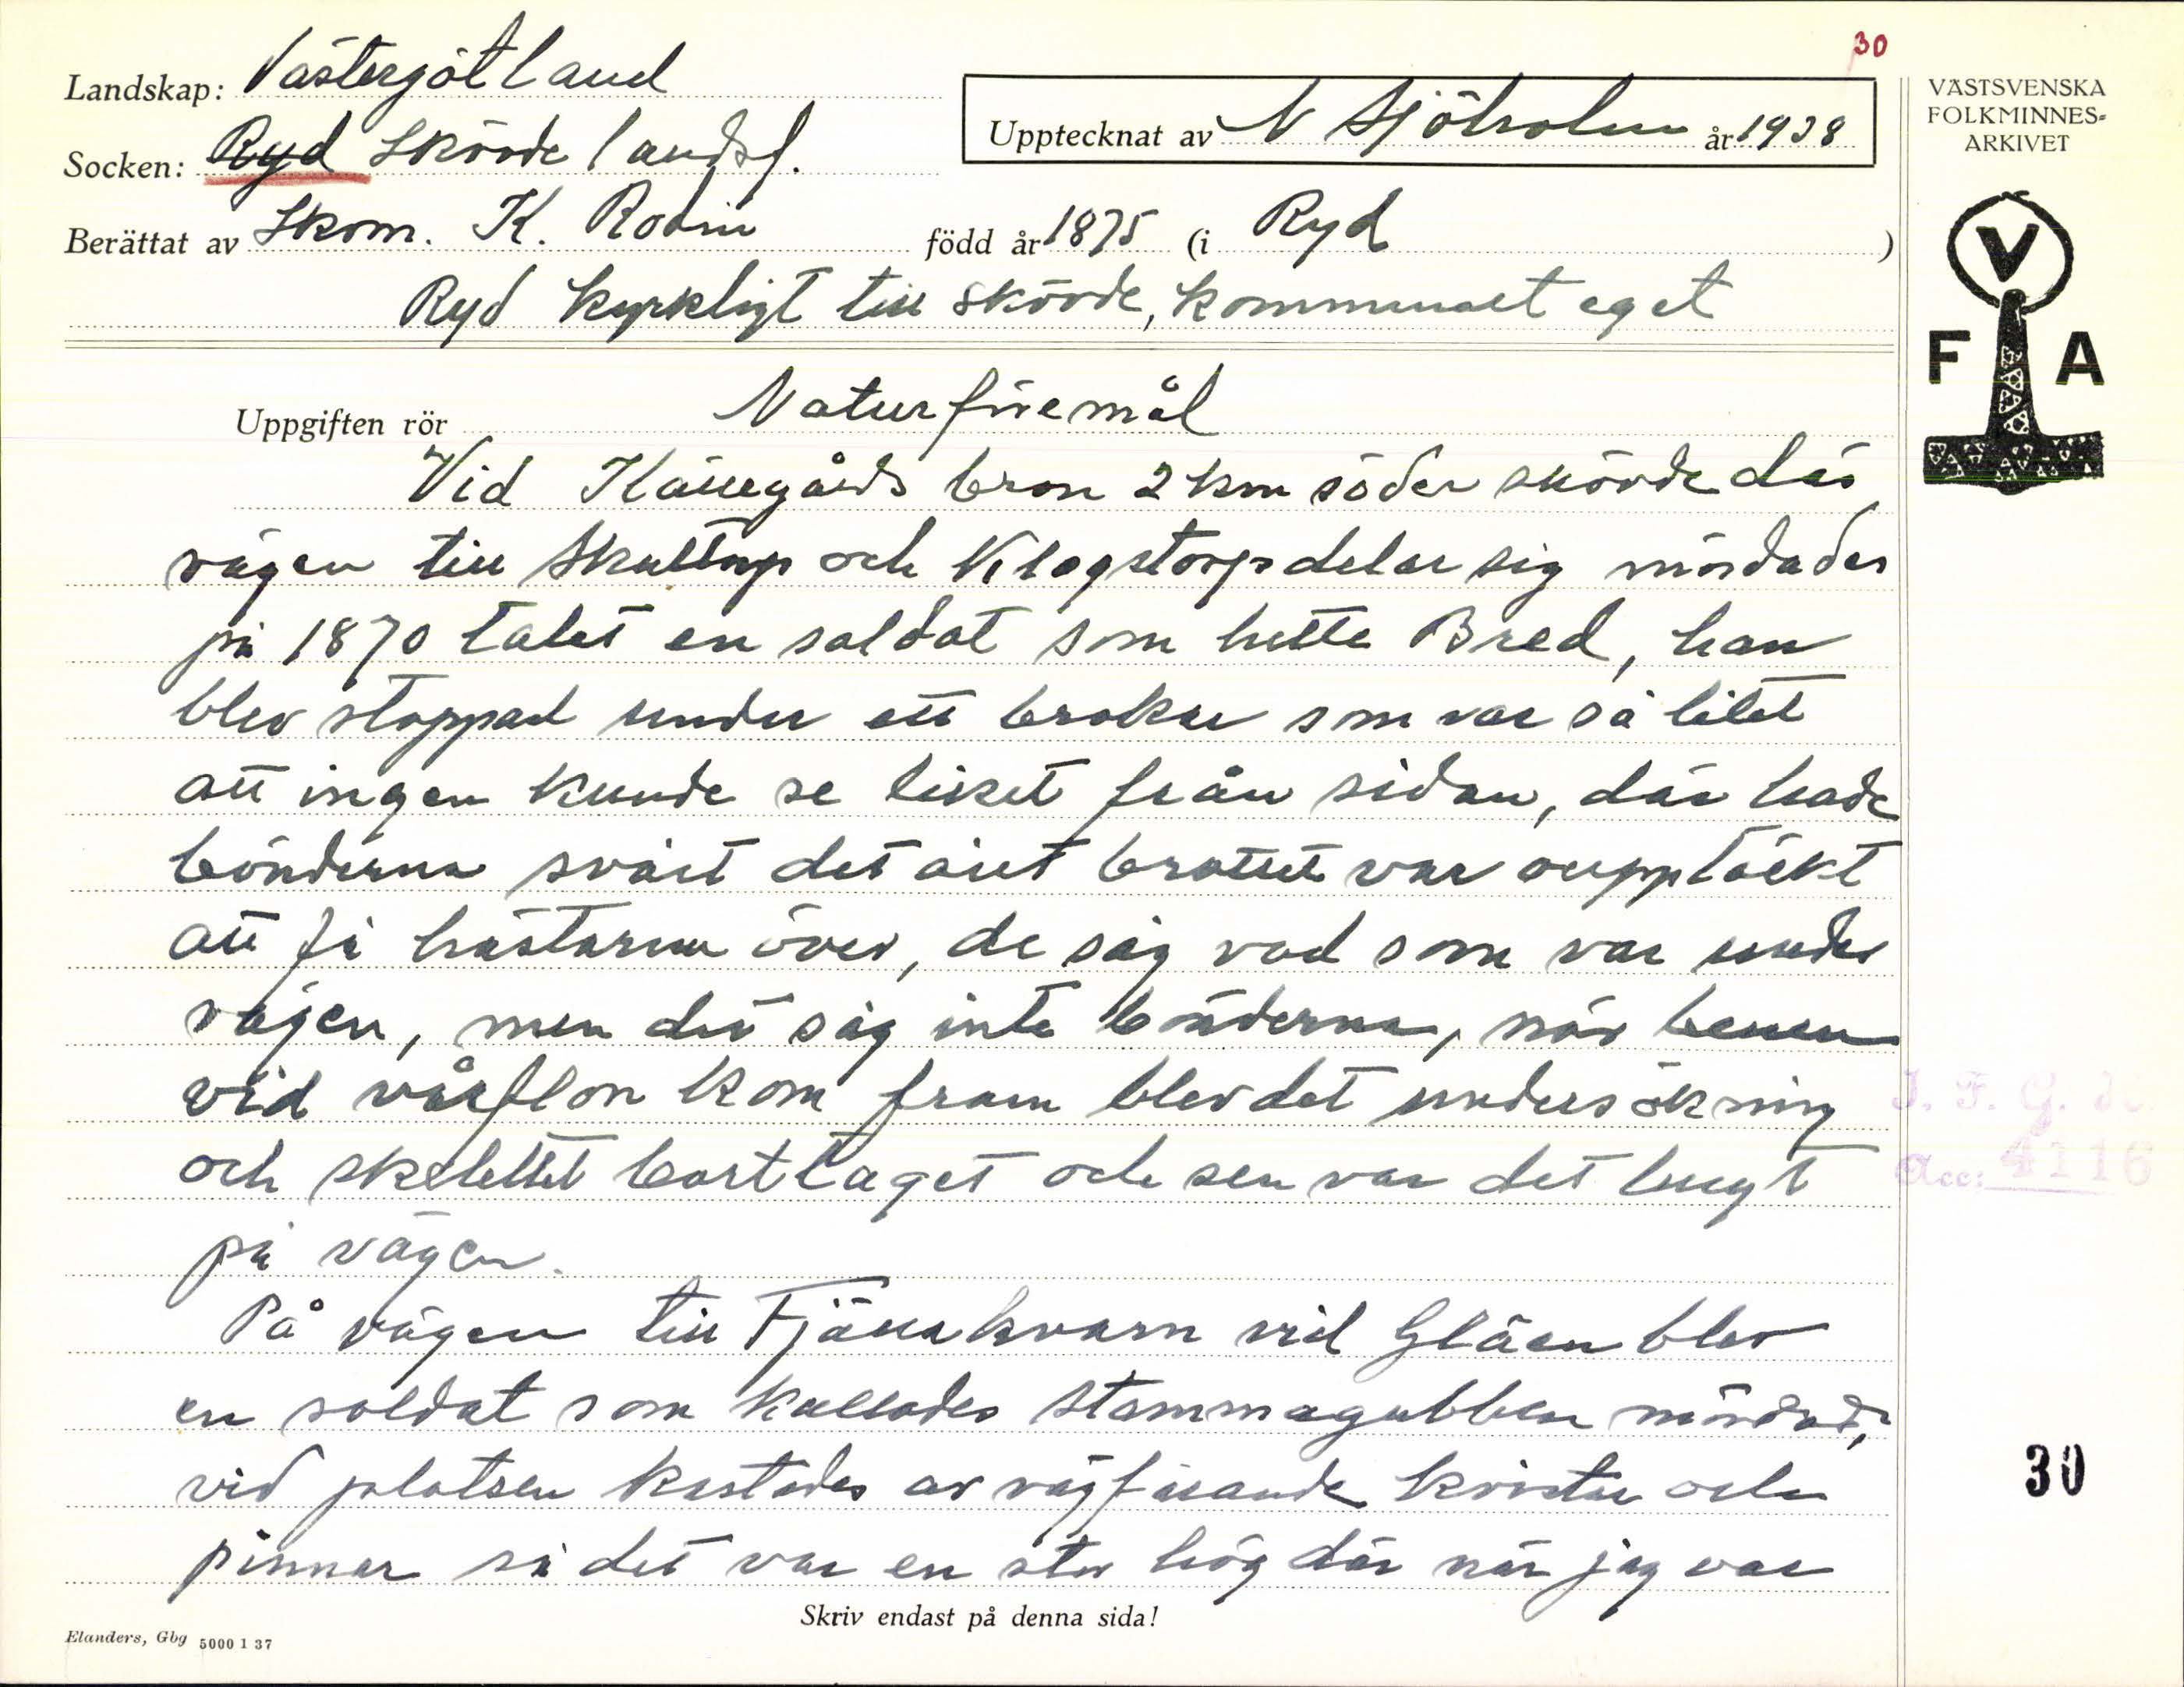 30
Landskap: Västergötland
Socken: Ryd Skövde landsf.
Upptecknat av N Sjöholm år 1938
Berättat av Skom. K. Rodin född år 1875 (i Ryd)
Ryd kyrkligt till Skövde, kommunalt eget
VÄSTSVENSKA
FOLKMINNES-
ARKIVET
V
F A
Uppgiften rör Naturföremål
Vid Hänegårds bron 2 km söder skövde där
vägen till Skultorp och Klagstorp delar sig mördades
på 1870 talet en soldat som hette Bred, han
blev stoppad under ett brokar som var så litet
att ingen kunde se liket från sidan, där hade
bönderna svårt det året brottet var oupptäckt
att få hästarna över, de såg vad som var under
vägen, men det såg inte bönderna, när benen
vid vårflon kom fram blev det undersökning
och skelettet borttaget och sen var det lugt
på vägen.
På vägen till Fjällakvarn vid Gläen blev
en soldat som kallades Stammagubben mördad,
vid platsen kastades av vägfarande kvistar och
pinnar så det var en stor hög där när jag var
J. F. G. ds
Acc: 4116
30
Skriv endast på denna sida!
Elanders, Gbg 5000 1 37